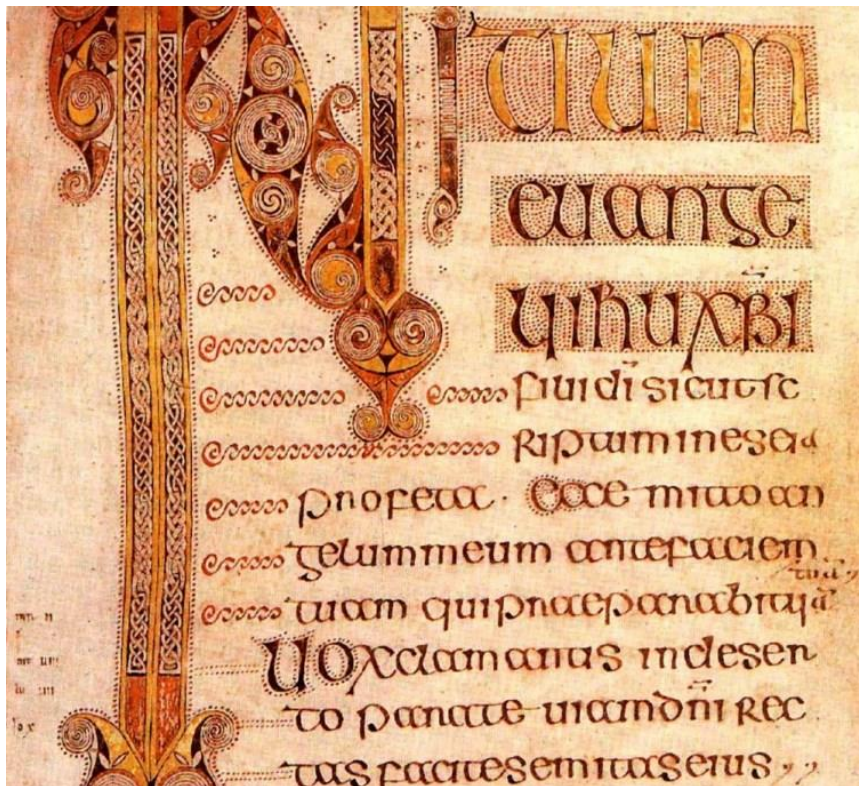 INITIUM
euange
lii ihu xp̄i
filii dī sicut sc
riptum in eseia
profeta · Ecce mitto an
gelum meum ante faciem
tuā,,
tuam qui praeparabit uiā
Uox clamantis in deser
to parate uiam dn̄i rec
tas facite semitas eius,,